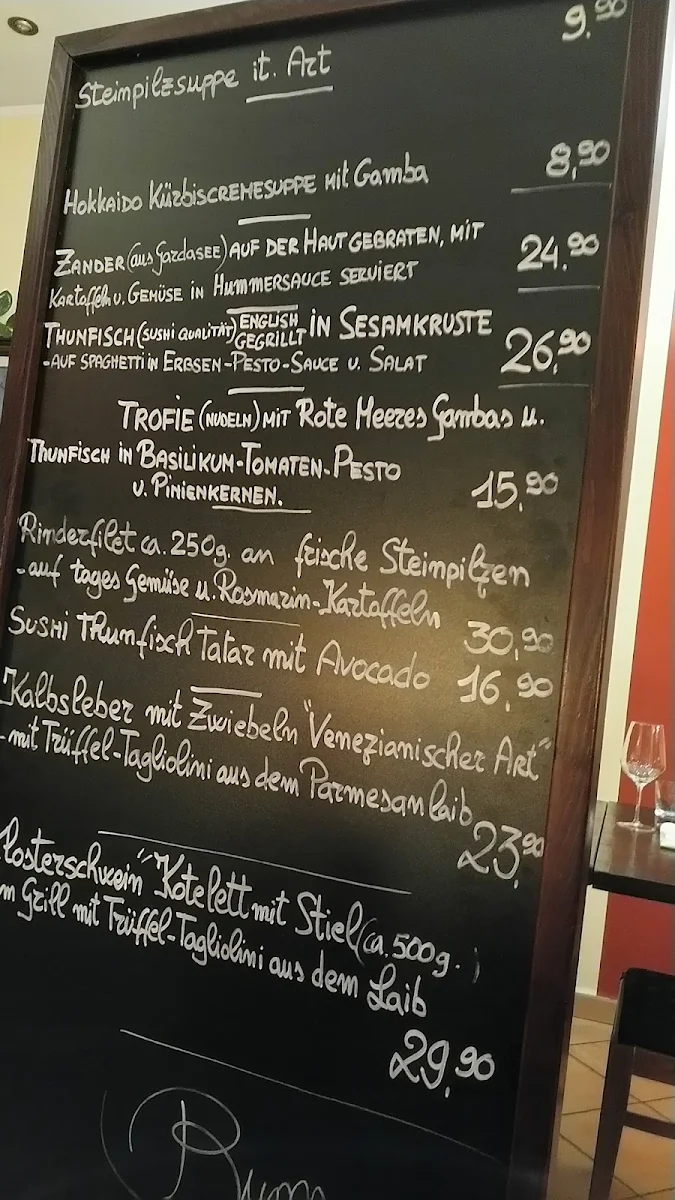 9.90
Steinpilzsuppe it. Art
8,90
Hokkaido Kürbiscremesuppe mit Gamba
Zander (aus Gardasee) auf der Haut gebraten, mit
24.90
Kartoffeln u. Gemüse in Hummersauce serviert
Thunfisch (sushi qualität) English gegrillt in Sesamkruste
26,90
-auf spaghetti in Erbsen-Pesto-Sauce u. Salat
Trofie (nudeln) mit Rote Meeres Gambas u.
Thunfisch in Basilikum-Tomaten-Pesto
15,90
u. Pinienkernen.
Rinderfilet ca. 250g. an frische Steinpilzen
-auf tages Gemüse u. Rosmarin-Kartoffeln
30,90
Sushi Thunfisch Tatar mit Avocado 16,90
Kalbsleber mit Zwiebeln "Venezianischer Art"
-mit Trüffel-Tagliolini aus dem Parmesanlaib
23,90
losterschwein "Kotelett mit Stiel (ca. 500g.)
m Grill mit Trüffel-Tagliolini aus dem Laib
29,90